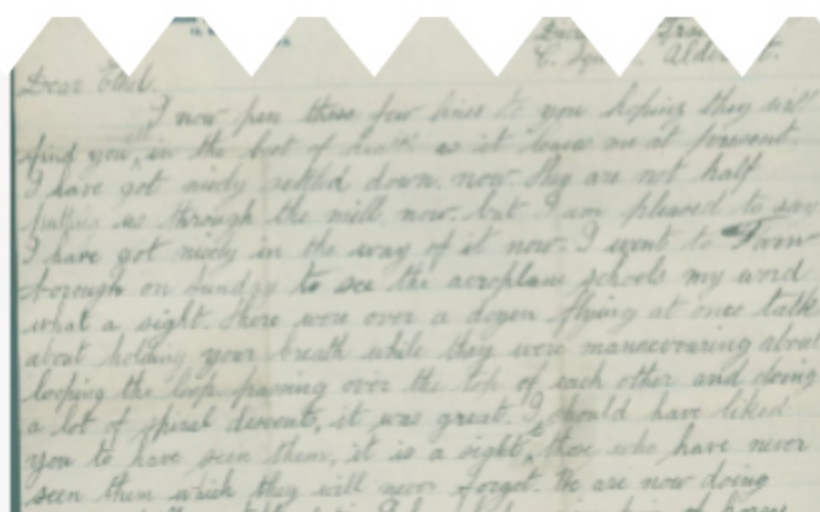 Dear Ethel.
I now pen these few lines to you hoping they will
find you, in the best of health as it leaves me at present.
I have got nicely settled down. now. they are not half
putting us through the mill now. but I am pleased to say
I have got nicely in the way of it now. I went to Farn-
borough on Sunday to see the aeroplane schools my word
what a sight. there were over a dozen flying at once talk
about holding your breath while they were manoeuvring about
looping the loop passing over the top of each other and doing
a lot of spiral descents, it was great. I should have liked
you to have seen them, it is a sight, those who have never
seen them which they will never forget. We are now doing